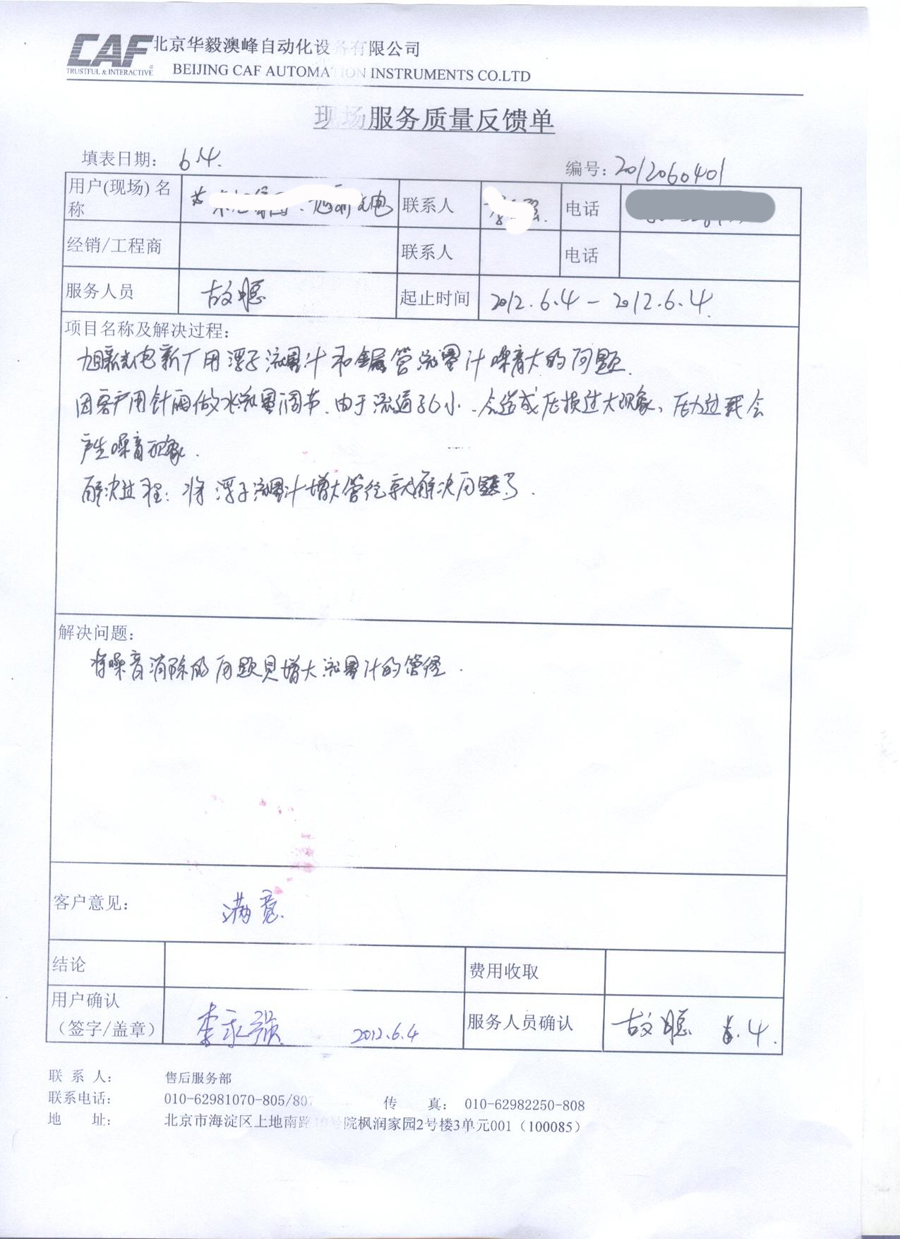 CAF 北京华毅澳峰自动化设备有限公司
TRUSTFUL & INTERACTIVE BEIJING CAF AUTOMATION INSTRUMENTS CO.LTD
现场服务质量反馈单
填表日期: 6.4. 编号: 2012060401
用户(现场)名称 电 联系人 电话
经销/工程商 联系人 电话
服务人员 起止时间 2012.6.4 - 2012.6.4.
项目名称及解决过程:
旭新光电新厂用浮子流量计和金属管流量计噪音大的问题.
因客户用针阀做水流量调节.由于流通 小.会造成压损过大现象、压力过 会
产生噪音现象.
解决过程: 将浮子流量计增大管径就解决问题了.
解决问题:
将噪音消除的问题 增大流量计的管径.
客户意见: 满意.
结论 费用收取
用户确认
(签字/盖章) 李永强 2012.6.4 服务人员确认 6.4.
联 系 人: 售后服务部
联系电话: 010-62981070-805/80 传 真: 010-62982250-808
地 址: 北京市海淀区上地南路 号院枫润家园2号楼3单元001 (100085)